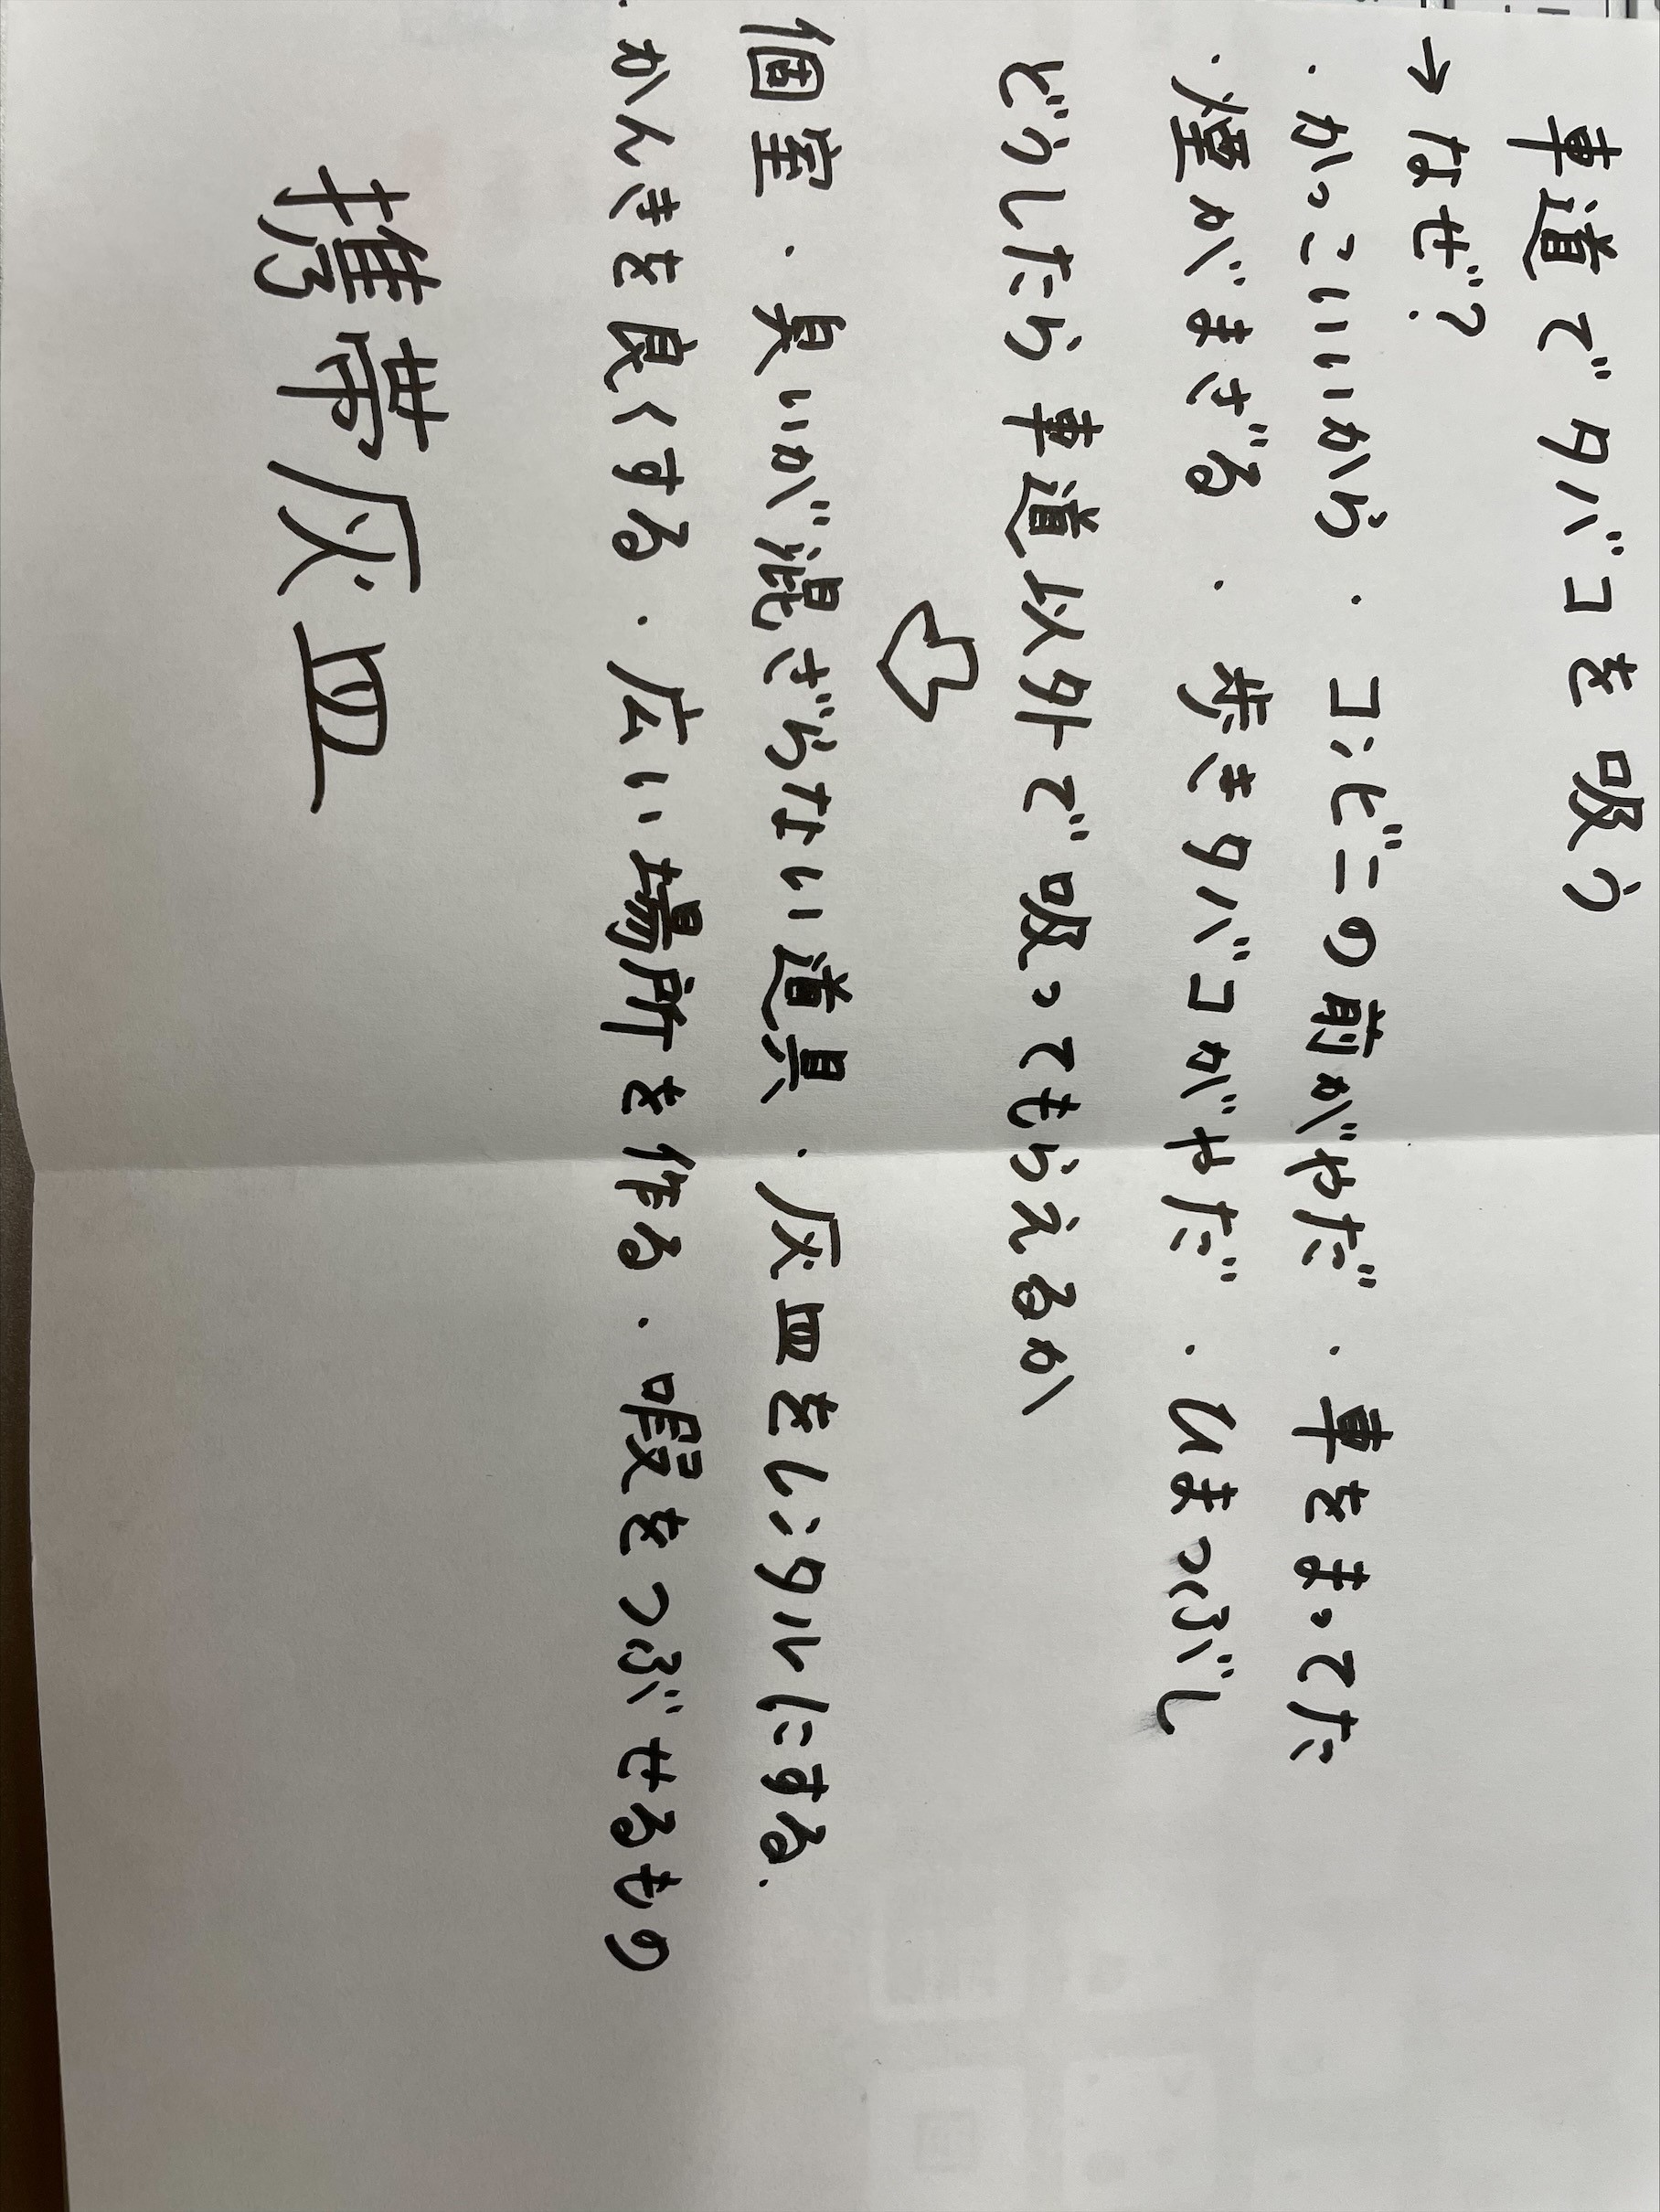 車道でタバコを吸う
→なぜ?
・かっこいいから・コンビニの前がやだ・車をまってた
・煙がまざる・歩きタバコがやだ・ひまつぶし
どうしたら車道以外で吸ってもらえるか
個室・臭いが混ざらない道具・灰皿をレンタルにする・
・かんきを良くする・広い場所を作る・暇をつぶせるもの
携帯灰皿